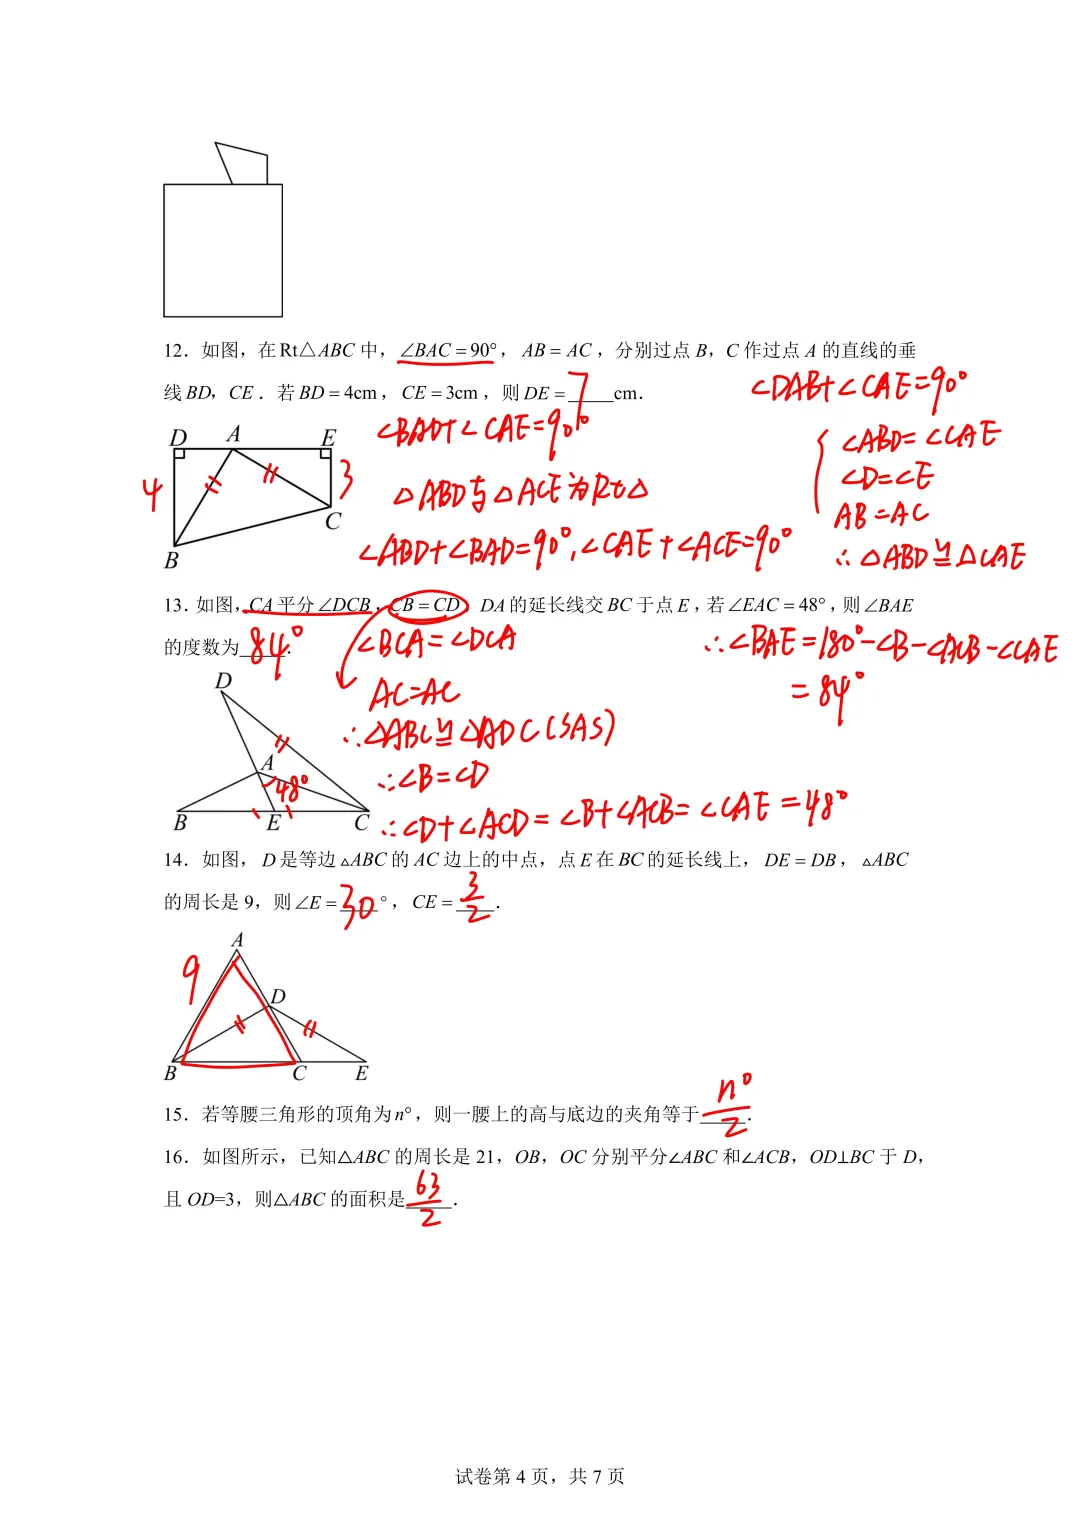 12．如图，在Rt△ABC 中，∠BAC = 90°，AB = AC，分别过点 B，C 作过点 A 的直线的垂
线 BD，CE．若 BD = 4cm，CE = 3cm，则 DE = 7 cm．
∠DAB+∠CAE=90°
∠BAD+∠CAE=90°
∠ABD=∠CAE
∠D=∠E
AB=AC
∴△ABD≌△CAE
△ABD与△ACE为Rt△
∠ABD+∠BAD=90°,∠CAE+∠ACE=90°
D A E
4 3
C
B
13．如图，CA 平分∠DCB，CB = CD，DA 的延长线交 BC 于点 E，若∠EAC = 48°，则∠BAE
的度数为 84°．
∠BCA=∠DCA
AC=AC
∴△ABC≌△ADC(SAS)
∴∠B=∠D
∴∠D+∠ACD=∠B+∠ACB=∠CAE=48°
∴∠BAE=180°-∠B-∠ACB-∠CAE
=84°
D
A
48°
B E C
14．如图，D 是等边△ABC 的 AC 边上的中点，点 E 在 BC 的延长线上，DE = DB，△ABC
的周长是 9，则∠E = 30 °，CE = 3/2．
A
9
D
B C E
15．若等腰三角形的顶角为 n°，则一腰上的高与底边的夹角等于 n°/2．
16．如图所示，已知△ABC 的周长是 21，OB，OC 分别平分∠ABC 和∠ACB，OD⊥BC 于 D，
且 OD=3，则△ABC 的面积是 63/2．
试卷第 4 页，共 7 页